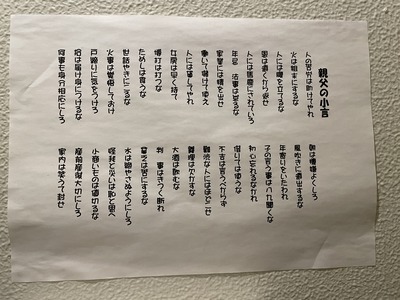 親父の小言
人の苦労は助けてやれ
火は粗末にするな
人には腹を立てるな
恩は遠くから返せ
人には馬鹿にされていろ
年忌 法事は怠るな
家業には精を出せ
働いて儲けて使え
人には貸してやれ
女房は早く持て
博打は打つな
ためしは食うな
世話やきになるな
火事は覚悟しておけ
戸締りに気をつけろ
拾は届け身につけるな
何事も身分相応にしろ
朝は機嫌よくしろ
風吹きに遠出するな
年寄りをいたわれ
子の言う事は八九聞くな
初心忘れるなかれ
借りては使うな
不吉は言うべからず
難渋な人にはほどこせ
義理は欠かすな
大酒は飲むな
判事はきつく断れ
貧乏は苦にするな
水は絶やさぬようにしろ
怪我と災いは恥と思へ
小商いものは値切るな
産前産後大切にしろ
家内は笑って